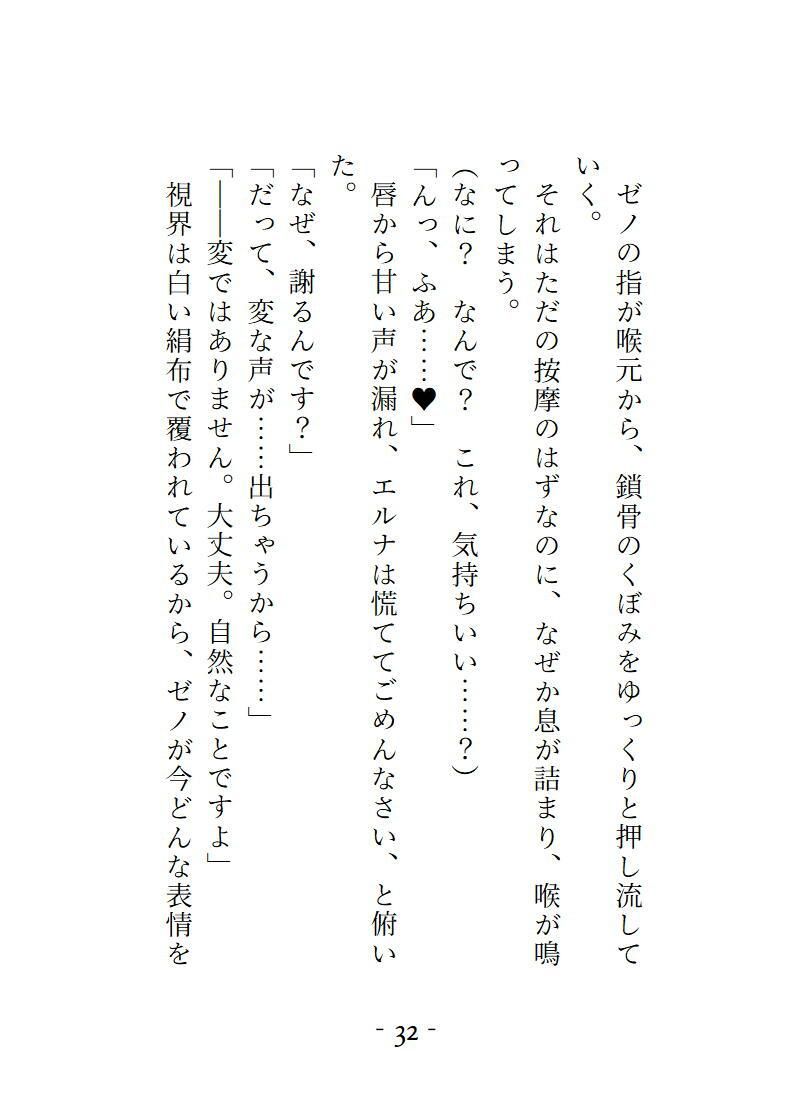 ゼノの指が喉元から、鎖骨のくぼみをゆっくりと押し流して
いく。
　それはただの按摩のはずなのに、なぜか息が詰まり、喉が鳴
ってしまう。
（なに？　なんで？　これ、気持ちいい……？）
「んっ、ふあ……♥」
　唇から甘い声が漏れ、エルナは慌ててごめんなさい、と俯い
た。
「なぜ、謝るんです？」
「だって、変な声が……出ちゃうから……」
「――変ではありません。大丈夫。自然なことですよ」
　視界は白い絹布で覆われているから、ゼノが今どんな表情を
- 32 -